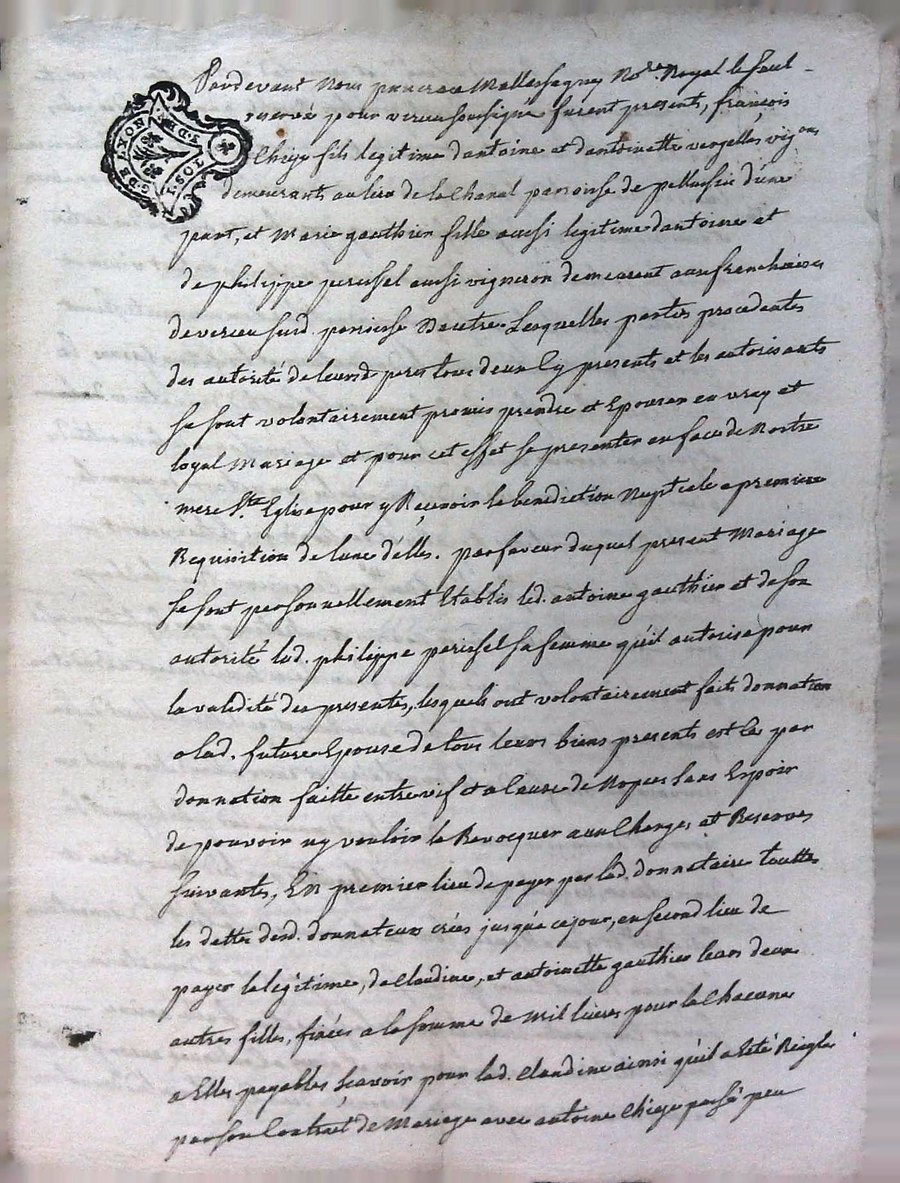 G.DE LYON
1. SOL. TOS. 1. D.
Pardevant Nous pancrace Mallassagny No.re Royal le seul
reservé pour verieu soussigné furent presents, françois
Chize fils legitime dantoine et dantoinette vergelles vig.ons
demeurants au lieu de la Chanal parroisse de pellussin d'une
part, et Marie gauthier fille aussi legitime dantoine et
de philippe perissel aussi vigneron demeurant aux franchises
de verieu susd. parroisse Dautre Lesquelles parties procedantes
des autorité de leursd. peres tous deux Cy presents et les autorisants
se sont volontairement promis prendre et Epouser en vray et
loyal Mariage et pour cet effet se presenter en face de Nostre
mere S.te Eglise pour y Reçevoir la benediction Nuptiale a premiere
Requisition de lune d'elles. par faveur duquel present Mariage
se sont personnellement Etablis led. antoine gauthier et de son
autorité lad. philippe perissel sa femme qu'il autorise pour
la validité des presentes, lesquels ont volontairement faits donnation
a lad. future Epouse de tous leurs biens presents est ce par
donnation faitte entre vif et a cause de Nopces sans Espoir
de pouvoir ny vouloir la Revocquer aux Charges et Reserves
suivantes, En premier lieu de payer par lad. donnataire touttes
les dette desd. donnateurs créés jusqu'a ce jour, en second lieu de
payer la légitime, de Claudine, et antoinette gauthier leurs deux
autres filles, fixées a la somme de Mil livres pour la Chacune
a Elles payables scavoir pour lad. Claudine ainsi qu'il a Eté Reiglé
par son Contract de Mariage avec antoine Chize passé peu